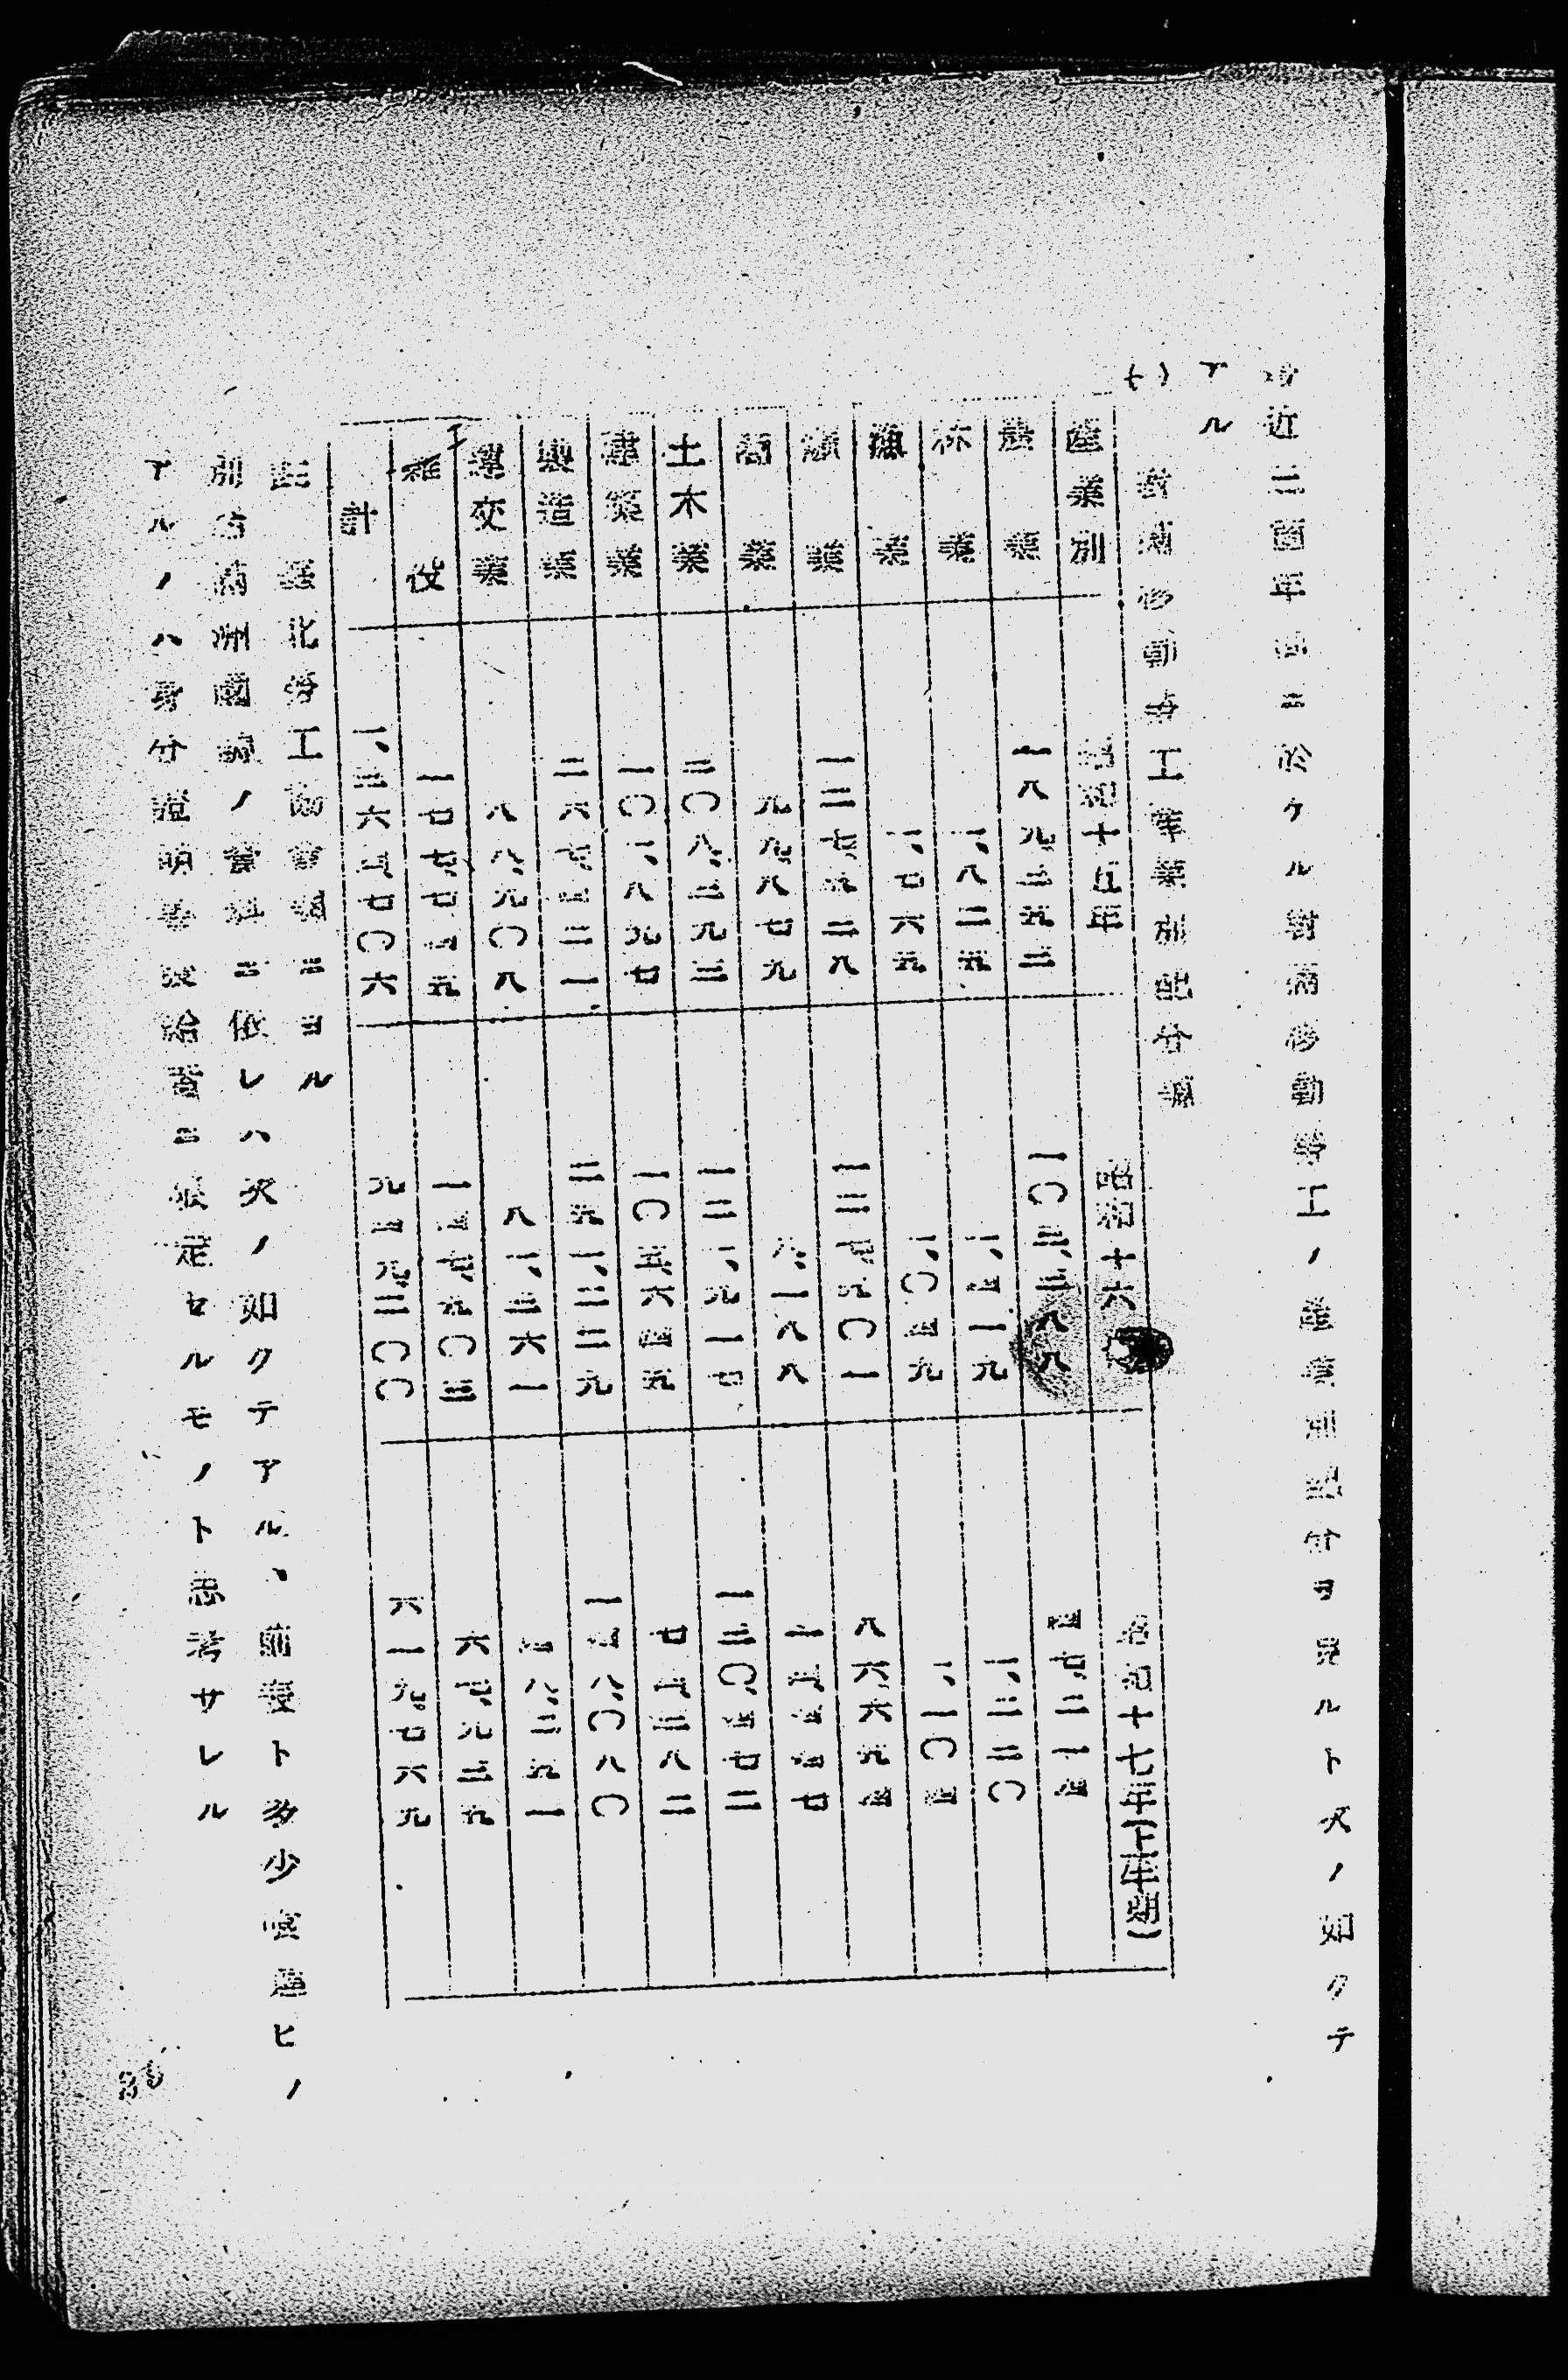 最近三箇年間ニ於ケル對滿移動勞工ノ産業別配分ヲ見ルト次ノ如クテ
アル
(一) 對滿移動勞工産業別配分調
産業別 昭和十五年 昭和十六 昭和十七年(上半期)
農業 一八九,三五三 一〇三,三八八 四七,二一四
林業 一,八二五 一,四一九 一,三二〇
漁業 一,七六五 一,〇四九 一,一〇四
鑛業 一三七,五二八 一三四,九〇一 八六,六九四
商業 九九,八七九 六,一八八 一五,四四七
土木業 二〇八,三九三 一二一,九一七 一三〇,四七二
建築業 一〇一,八九七 一〇五,六四五 七五,三八二
製造業 二六七,五二一 二五一,三二九 一四八,〇八〇
運交業 八八,九〇八 八一,三六一 四八,三五一
雜役 一七七,七五五 一四七,九〇三 六四,九三五
計 一,三六五,七〇六 九四九,三〇〇 六一九,七六九
註 華北勞工協會調ニヨル
別ニ滿洲國側ノ資料ニ依レハ次ノ如クテアル、前表ト多少喰違ヒノ
アルノハ身分證明書發給者ニ限定セルモノト思考サレル